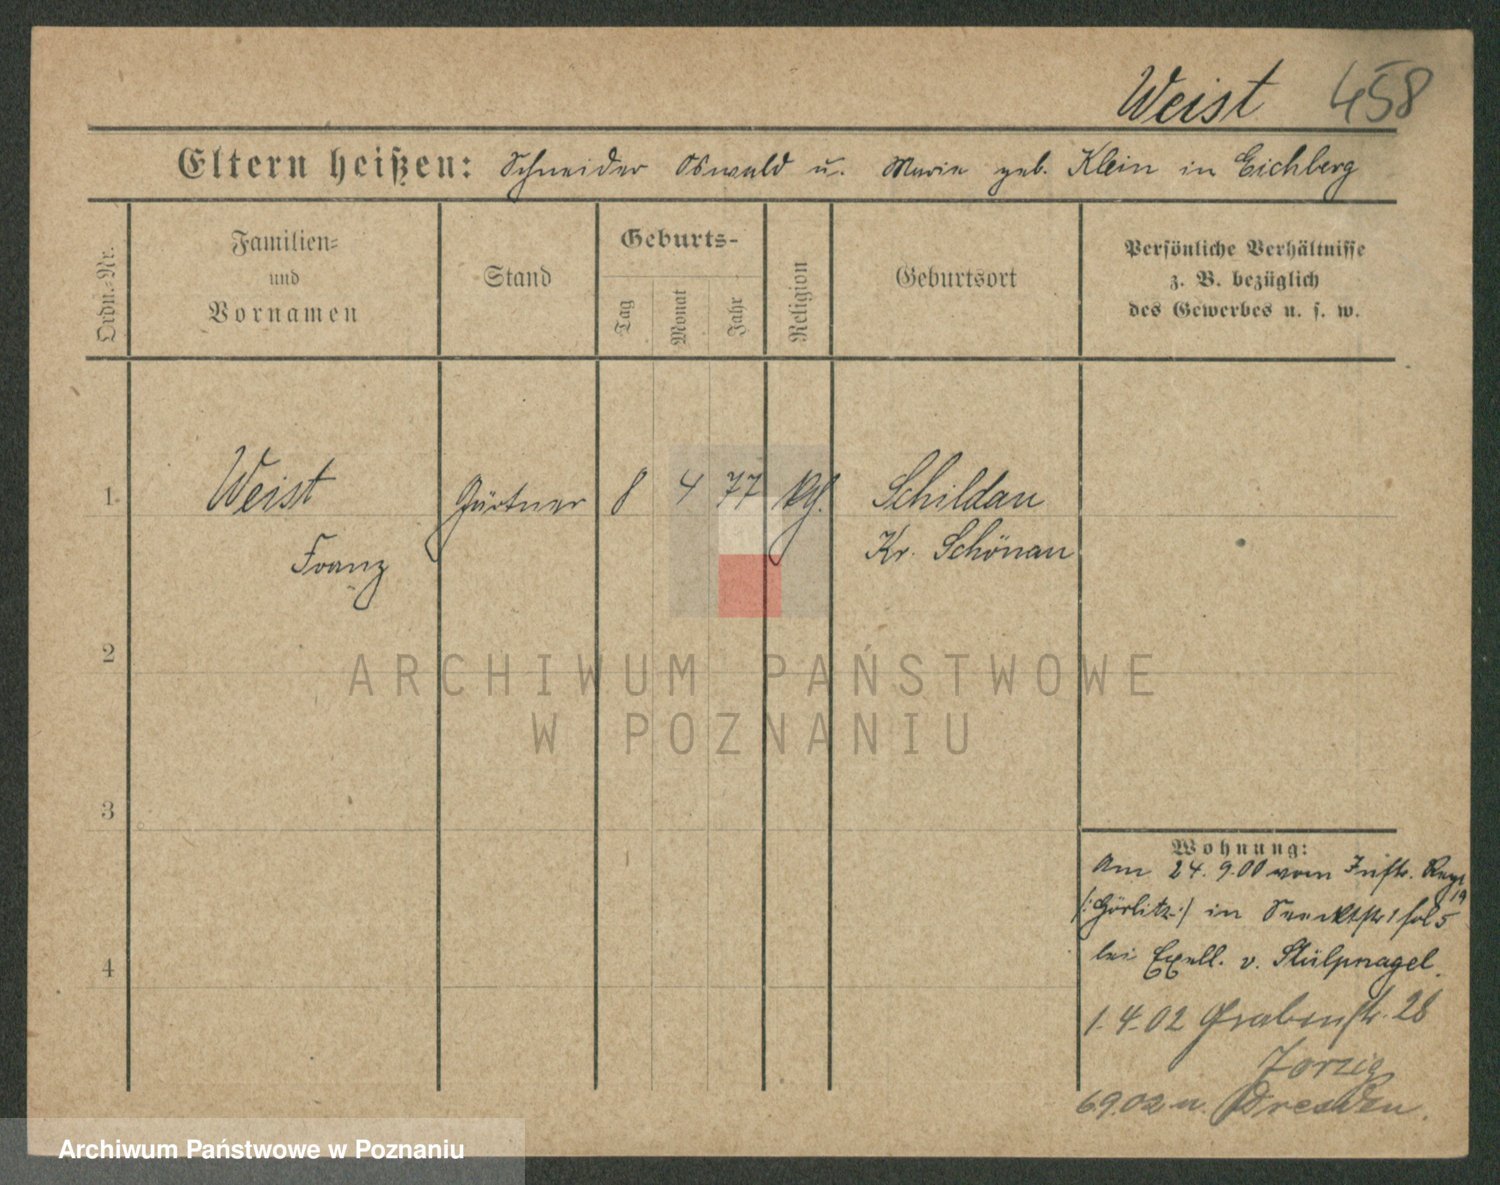 Weist 458
Eltern heißen: Schneider Oswald u. Marie geb. Klein in Eichberg
Ordn.-Nr.
Familien-
und
Vornamen
Stand
Geburts-
Tag
Monat
Jahr
Religion
Geburtsort
Persönliche Verhältnisse
z. B. bezüglich
des Gewerbes u. s. w.
1 Weist Gärtner 8 4 77 Schildau
Franz Kr. Schönau
2
3
4
Wohnung:
Am 24. 9.00 vom Inftr. Regt 19
/:Görlitz:/ in
bei Exzell. v. Stülpnagel.
1.4.02 Grabenstr. 28
6.9.02 n. Dresden.
ARCHIWUM PAŃSTWOWE
W POZNANIU
Archiwum Państwowe w Poznaniu